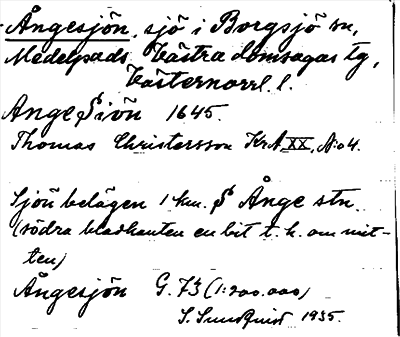 Ångesjön, sjö i Borgsjö sn,
Medelpads Västra domsagas tg,
Västernorrl. l.
Ange Siön 1645.
Thomas Christersson KrA XX, N:o 4.
Sjön belägen 1 km. S Ånge stn.
(södra bladkanten en bit t. h. om mit-
ten)
Ångesjön G. 73 (1:200.000)
S. Sundquist 1935.